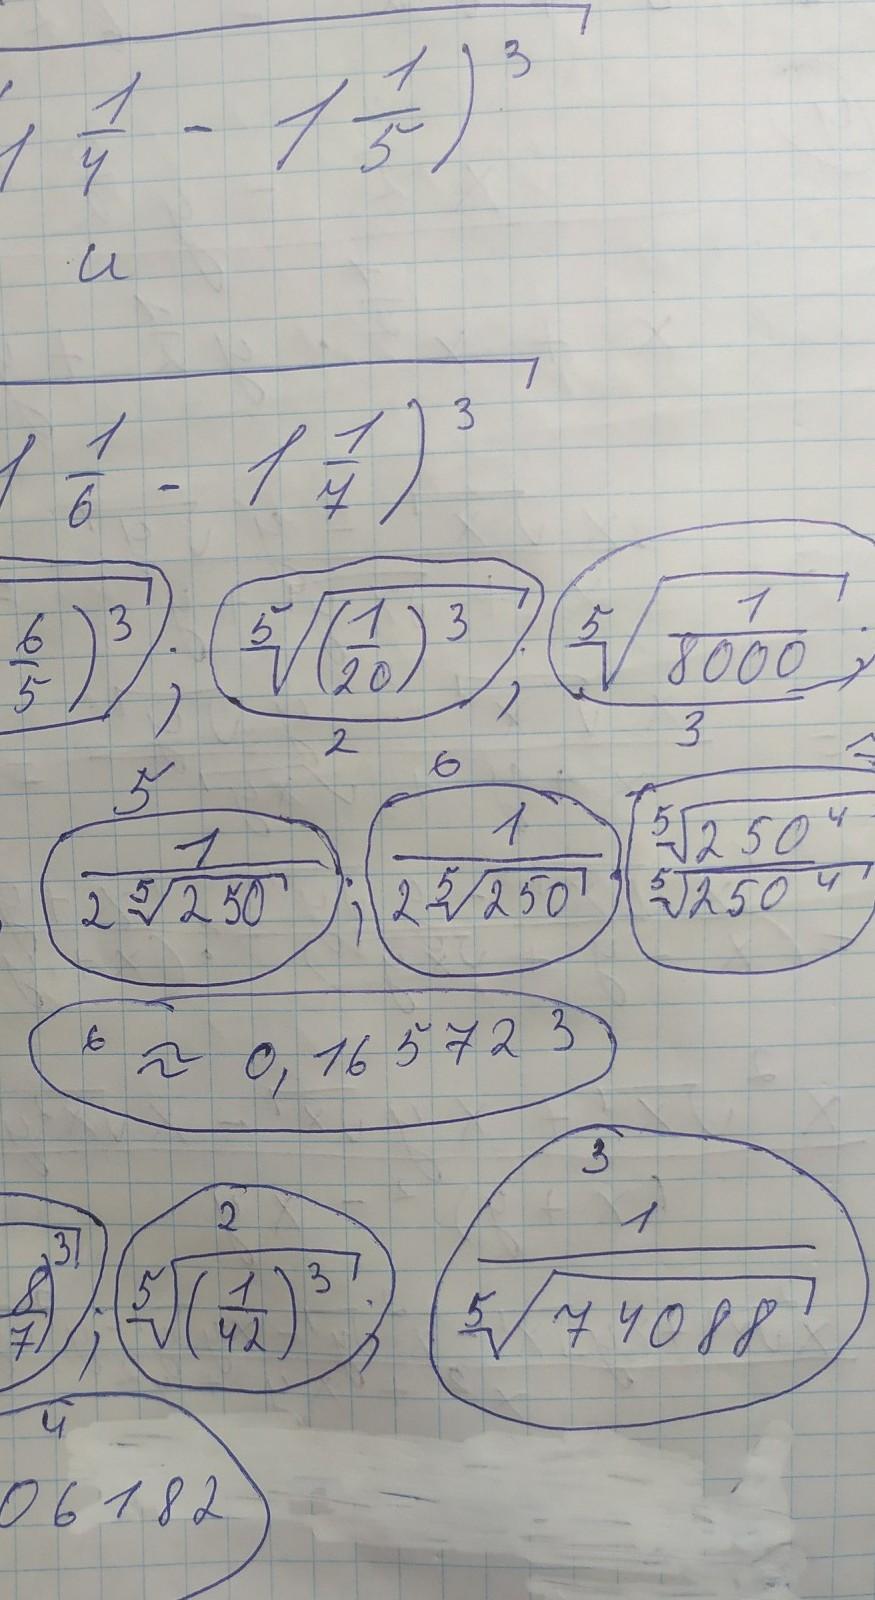 1 1/4 - 1 1/5)³
и
1 1/6 - 1 1/7)³
6/5)³; ⁵√(1/20)³; ⁵√1/8000;
2 3
5 6
1/2⁵√250; 1/2⁵√250 · ⁵√250⁴/⁵√250⁴
6 ≈ 0,165723
2 3
8/7)³; ⁵√(1/42)³; 1/⁵√74088
4
06182